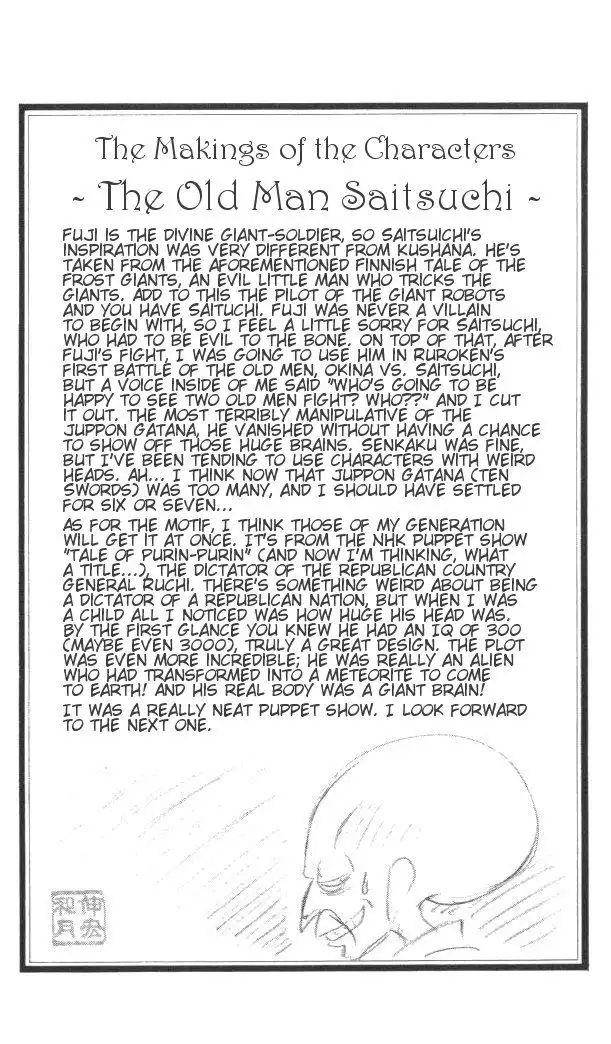 The Makings of the Characters
~ The Old Man Saitsuchi ~
FUJI IS THE DIVINE GIANT-SOLDIER, SO SAITSUICHI'S
INSPIRATION WAS VERY DIFFERENT FROM KUSHANA. HE'S
TAKEN FROM THE AFOREMENTIONED FINNISH TALE OF THE
FROST GIANTS, AN EVIL LITTLE MAN WHO TRICKS THE
GIANTS. ADD TO THIS THE PILOT OF THE GIANT ROBOTS
AND YOU HAVE SAITUCHI. FUJI WAS NEVER A VILLAIN
TO BEGIN WITH, SO I FEEL A LITTLE SORRY FOR SAITSUCHI,
WHO HAD TO BE EVIL TO THE BONE. ON TOP OF THAT, AFTER
FUJI'S FIGHT, I WAS GOING TO USE HIM IN RUROKEN'S
FIRST BATTLE OF THE OLD MEN, OKINA VS. SAITSUCHI,
BUT A VOICE INSIDE OF ME SAID "WHO'S GOING TO BE
HAPPY TO SEE TWO OLD MEN FIGHT? WHO??" AND I CUT
IT OUT. THE MOST TERRIBLY MANIPULATIVE OF THE
JUPPON GATANA, HE VANISHED WITHOUT HAVING A CHANCE
TO SHOW OFF THOSE HUGE BRAINS. SENKAKU WAS FINE,
BUT I'VE BEEN TENDING TO USE CHARACTERS WITH WEIRD
HEADS. AH... I THINK NOW THAT JUPPON GATANA (TEN
SWORDS) WAS TOO MANY, AND I SHOULD HAVE SETTLED
FOR SIX OR SEVEN...
AS FOR THE MOTIF, I THINK THOSE OF MY GENERATION
WILL GET IT AT ONCE. IT'S FROM THE NHK PUPPET SHOW
"TALE OF PURIN-PURIN" (AND NOW I'M THINKING, WHAT
A TITLE...), THE DICTATOR OF THE REPUBLICAN COUNTRY
GENERAL RUCHI. THERE'S SOMETHING WEIRD ABOUT BEING
A DICTATOR OF A REPUBLICAN NATION, BUT WHEN I WAS
A CHILD ALL I NOTICED WAS HOW HUGE HIS HEAD WAS.
BY THE FIRST GLANCE YOU KNEW HE HAD AN IQ OF 300
(MAYBE EVEN 3000), TRULY A GREAT DESIGN. THE PLOT
WAS EVEN MORE INCREDIBLE; HE WAS REALLY AN ALIEN
WHO HAD TRANSFORMED INTO A METEORITE TO COME
TO EARTH! AND HIS REAL BODY WAS A GIANT BRAIN!
IT WAS A REALLY NEAT PUPPET SHOW. I LOOK FORWARD
TO THE NEXT ONE.
和伸
月宏